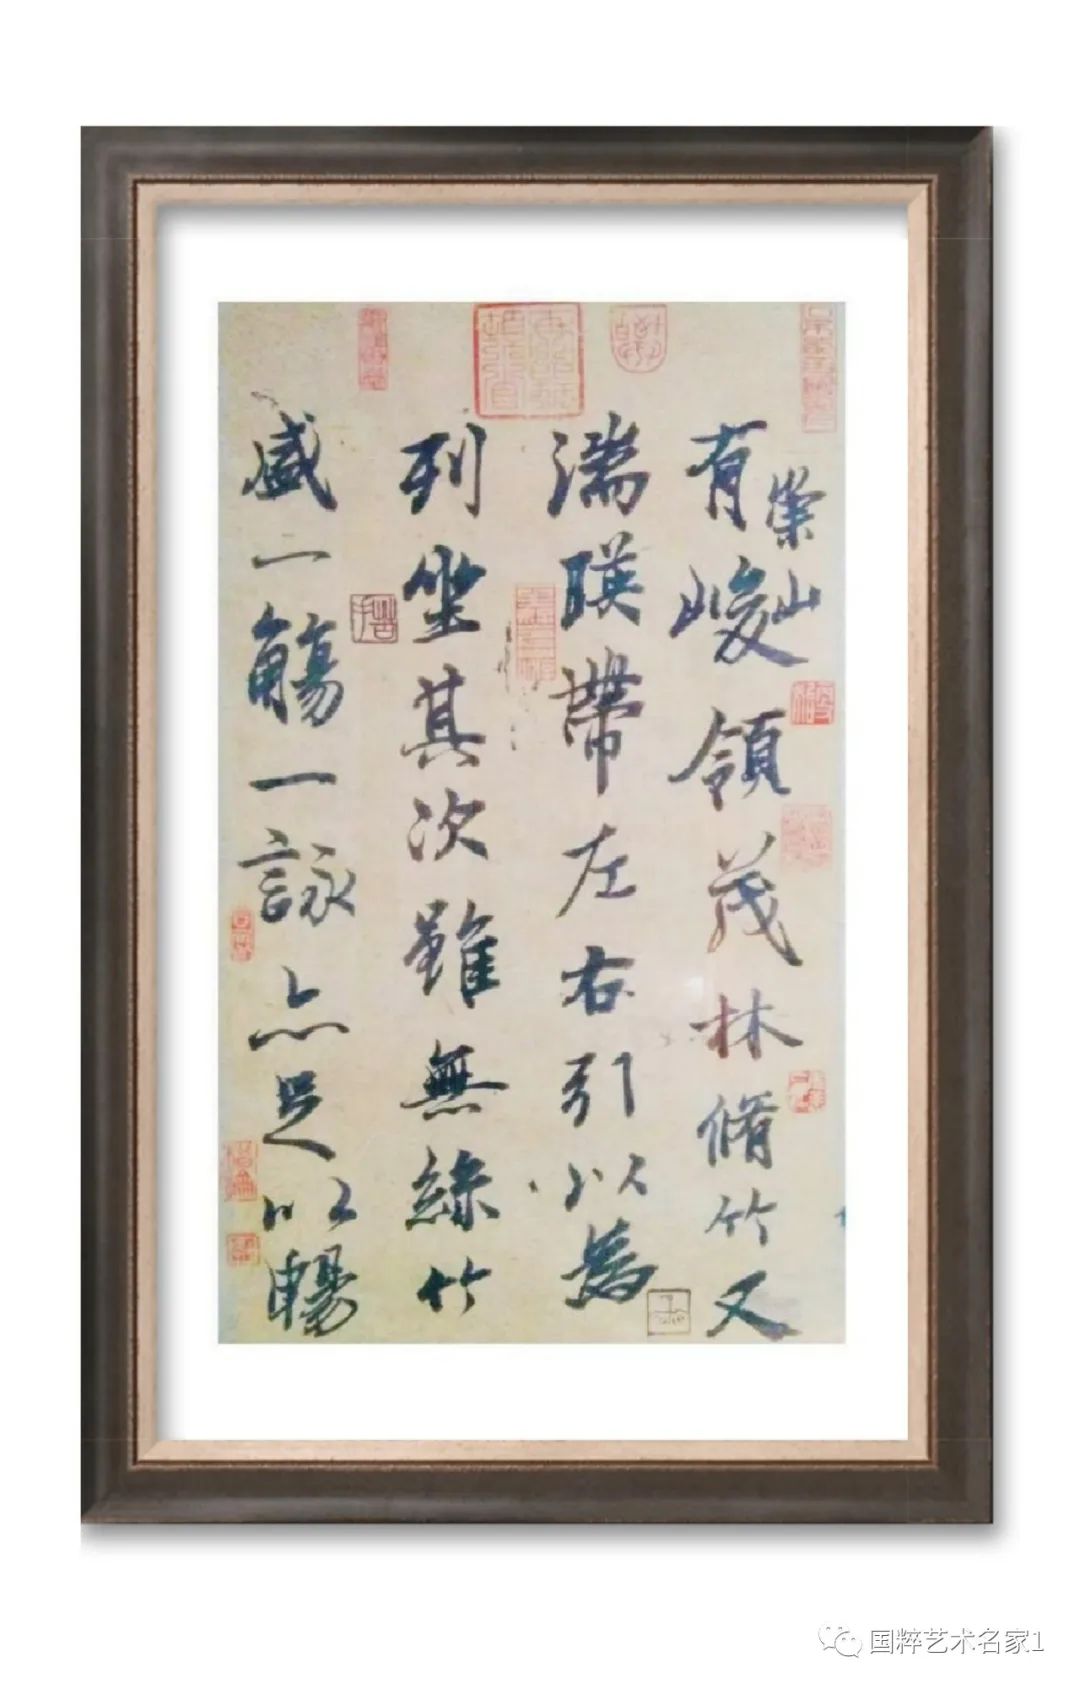 有崇山峻領茂林脩竹又
湍暎帶左右引以為
列坐其次雖無絲竹
盛一觴一詠亦足以暢
国粹艺术名家1